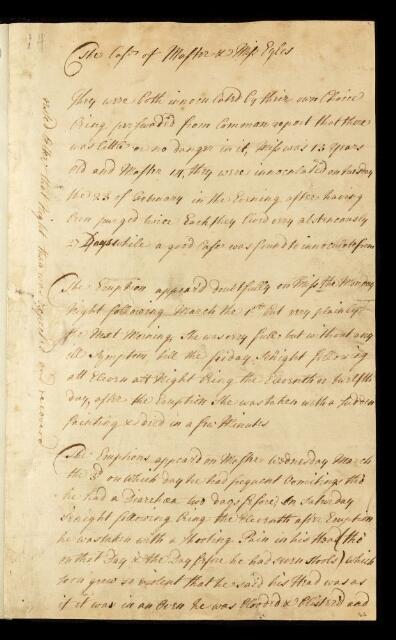 The Case of Master & Miss Eyles
They were both innoculated by their own Choice
being perswaded from Common report that there
was little or no danger in it, Miss was 13 Years
old and Master 14, they were innoculated on tuesday
the 23 of Febuary in the Evening after having
been purged twice Each they lived very abstemiously
27 Days while a good Case was found to innoculate from
The Eruption appeard doubtfully on Miss the Monday
Night following March the 1st but very plainly
the Next Morning, She was very full but without any
ill Symptom till the friday Senight following
att Eleven att Night being the Eleventh or twelfth
day, after the Eruption She was taken with a sudden
fainting & died in a few Minutes
The Eruptions appeard on Master wednesday March
the 3d on which day he had frequent Vomitings tho
he had a Diarrhæa two days before, On Saturday
Senight following being the Eleventh after Eruption
he was taken with a Shooting Pain in his Head (tho
on that Day & the Day before he had seven stools) which
soon grew so violent that he said his Head was as
if it was in an Oven he was blooded & blistered and